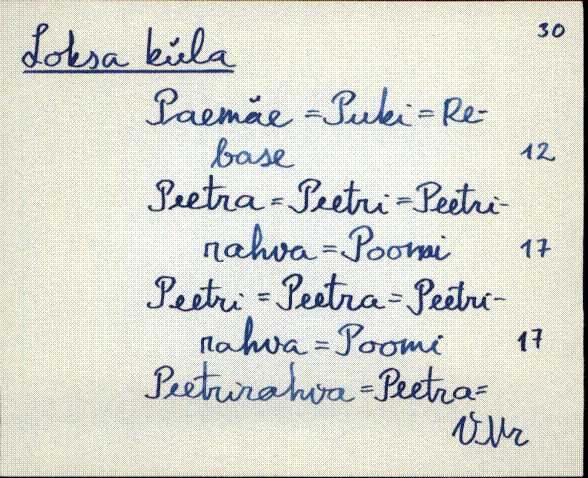 30
Loksa küla
Paemäe = Puki = Re-
base 12
Peetra = Peetri = Peetri-
rahva = Poomi 17
Peetri = Peetra = Peetri-
rahva = Poomi 17
Peetrirahva = Peetra =